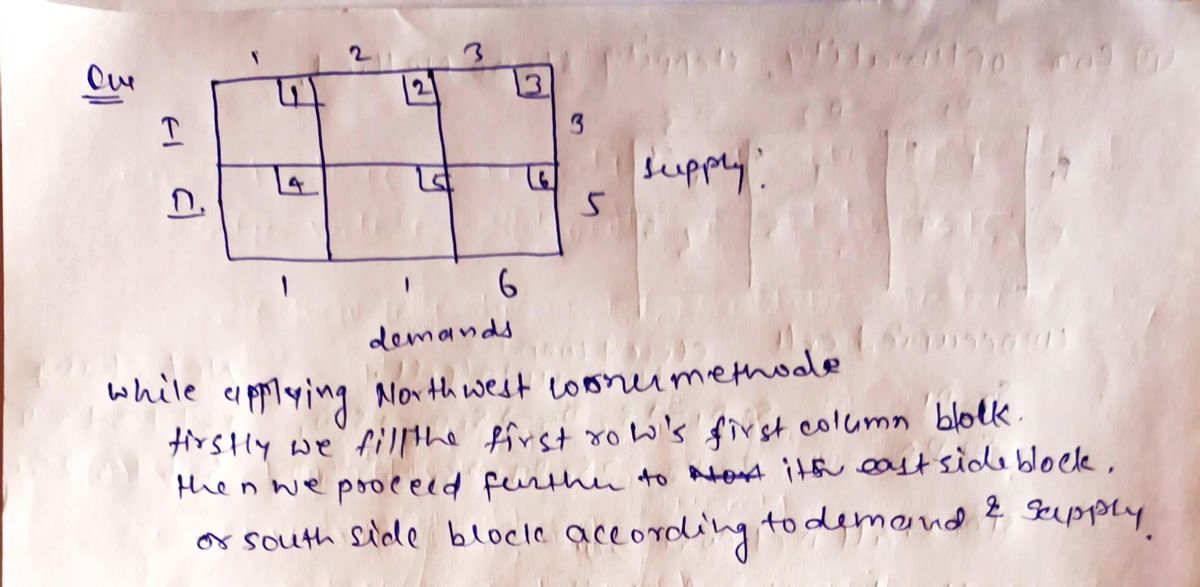 Que
1 2 3
I 1 2 3 3
II. 4 5 6 5
supply:
1 1 6
demands
while applying North west corner methode
firstly we fill the first row's first column block.
then we proceed further to its east side block.
or south side block according to demand & supply.